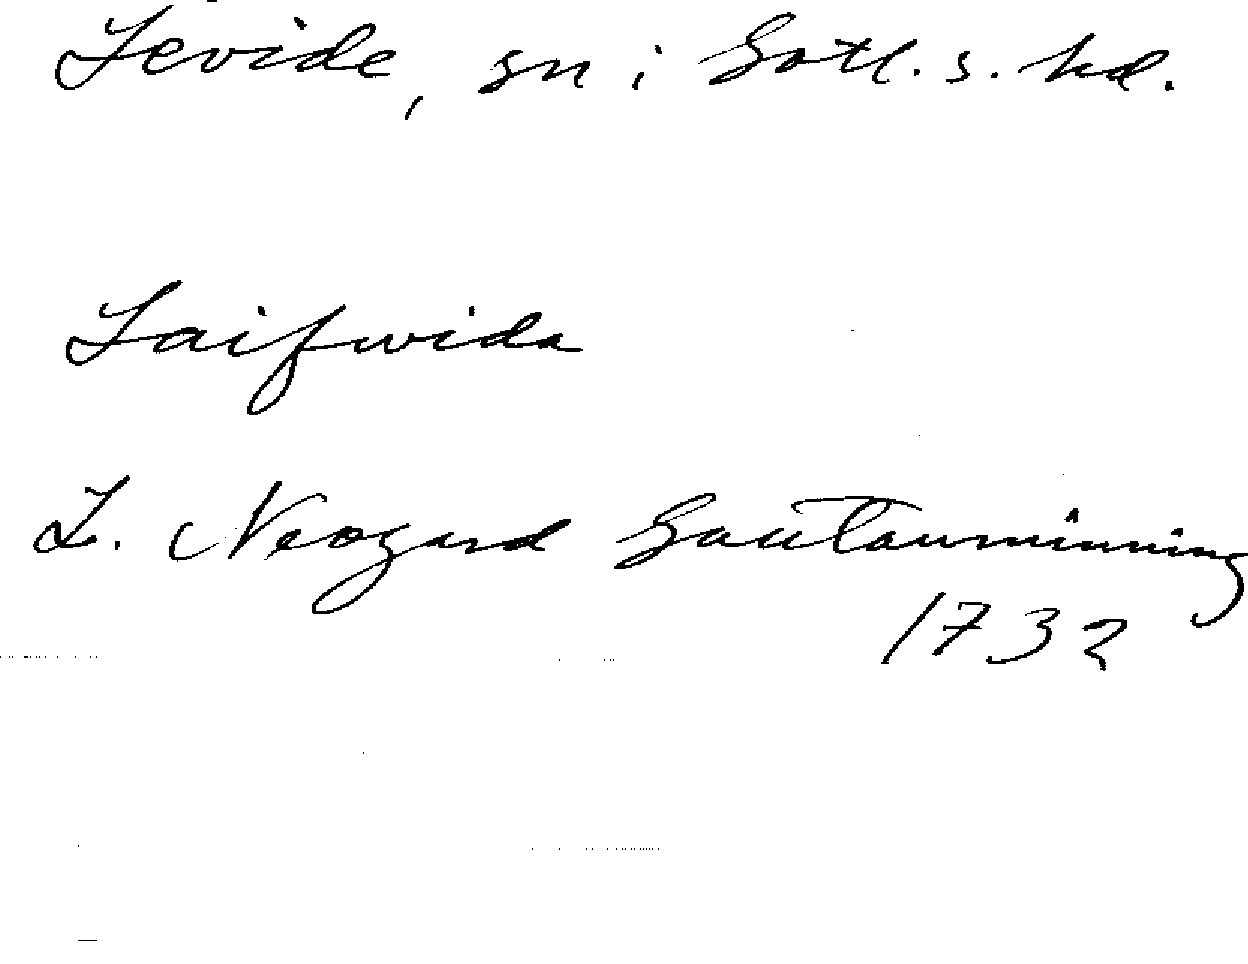 Levide, sn i Gotl. s. hd.
Laifwida
L. Neogard Gautauminning
1732